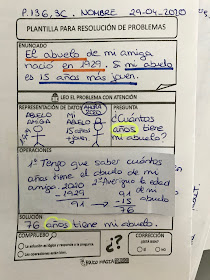 P.136, 3C. NOMBRE 29-04-2020
PLANTILLA PARA RESOLUCIÓN DE PROBLEMAS
ENUNCIADO
El abuelo de mi amiga
nació en 1929. Si mi abuelo
es 15 años más joven.
LEO EL PROBLEMA CON ATENCIÓN
REPRESENTACIÓN DE DATOS
AHORA 2020
PREGUNTA
ABUELO AMIGA
MI ABUELO
15 años
¿Cuántos
años tiene
mi abuelo?
OPERACIONES
1º Tengo que saber cuántos
años tiene el abuelo de mi
amiga. 2020
- 1929
91
2º Averiguo la edad
de mi abuelo.
91
- 15
76
SOLUCIÓN
76 años tiene mi abuelo.
COMPRUEBO
CORRECCIÓN
¿?